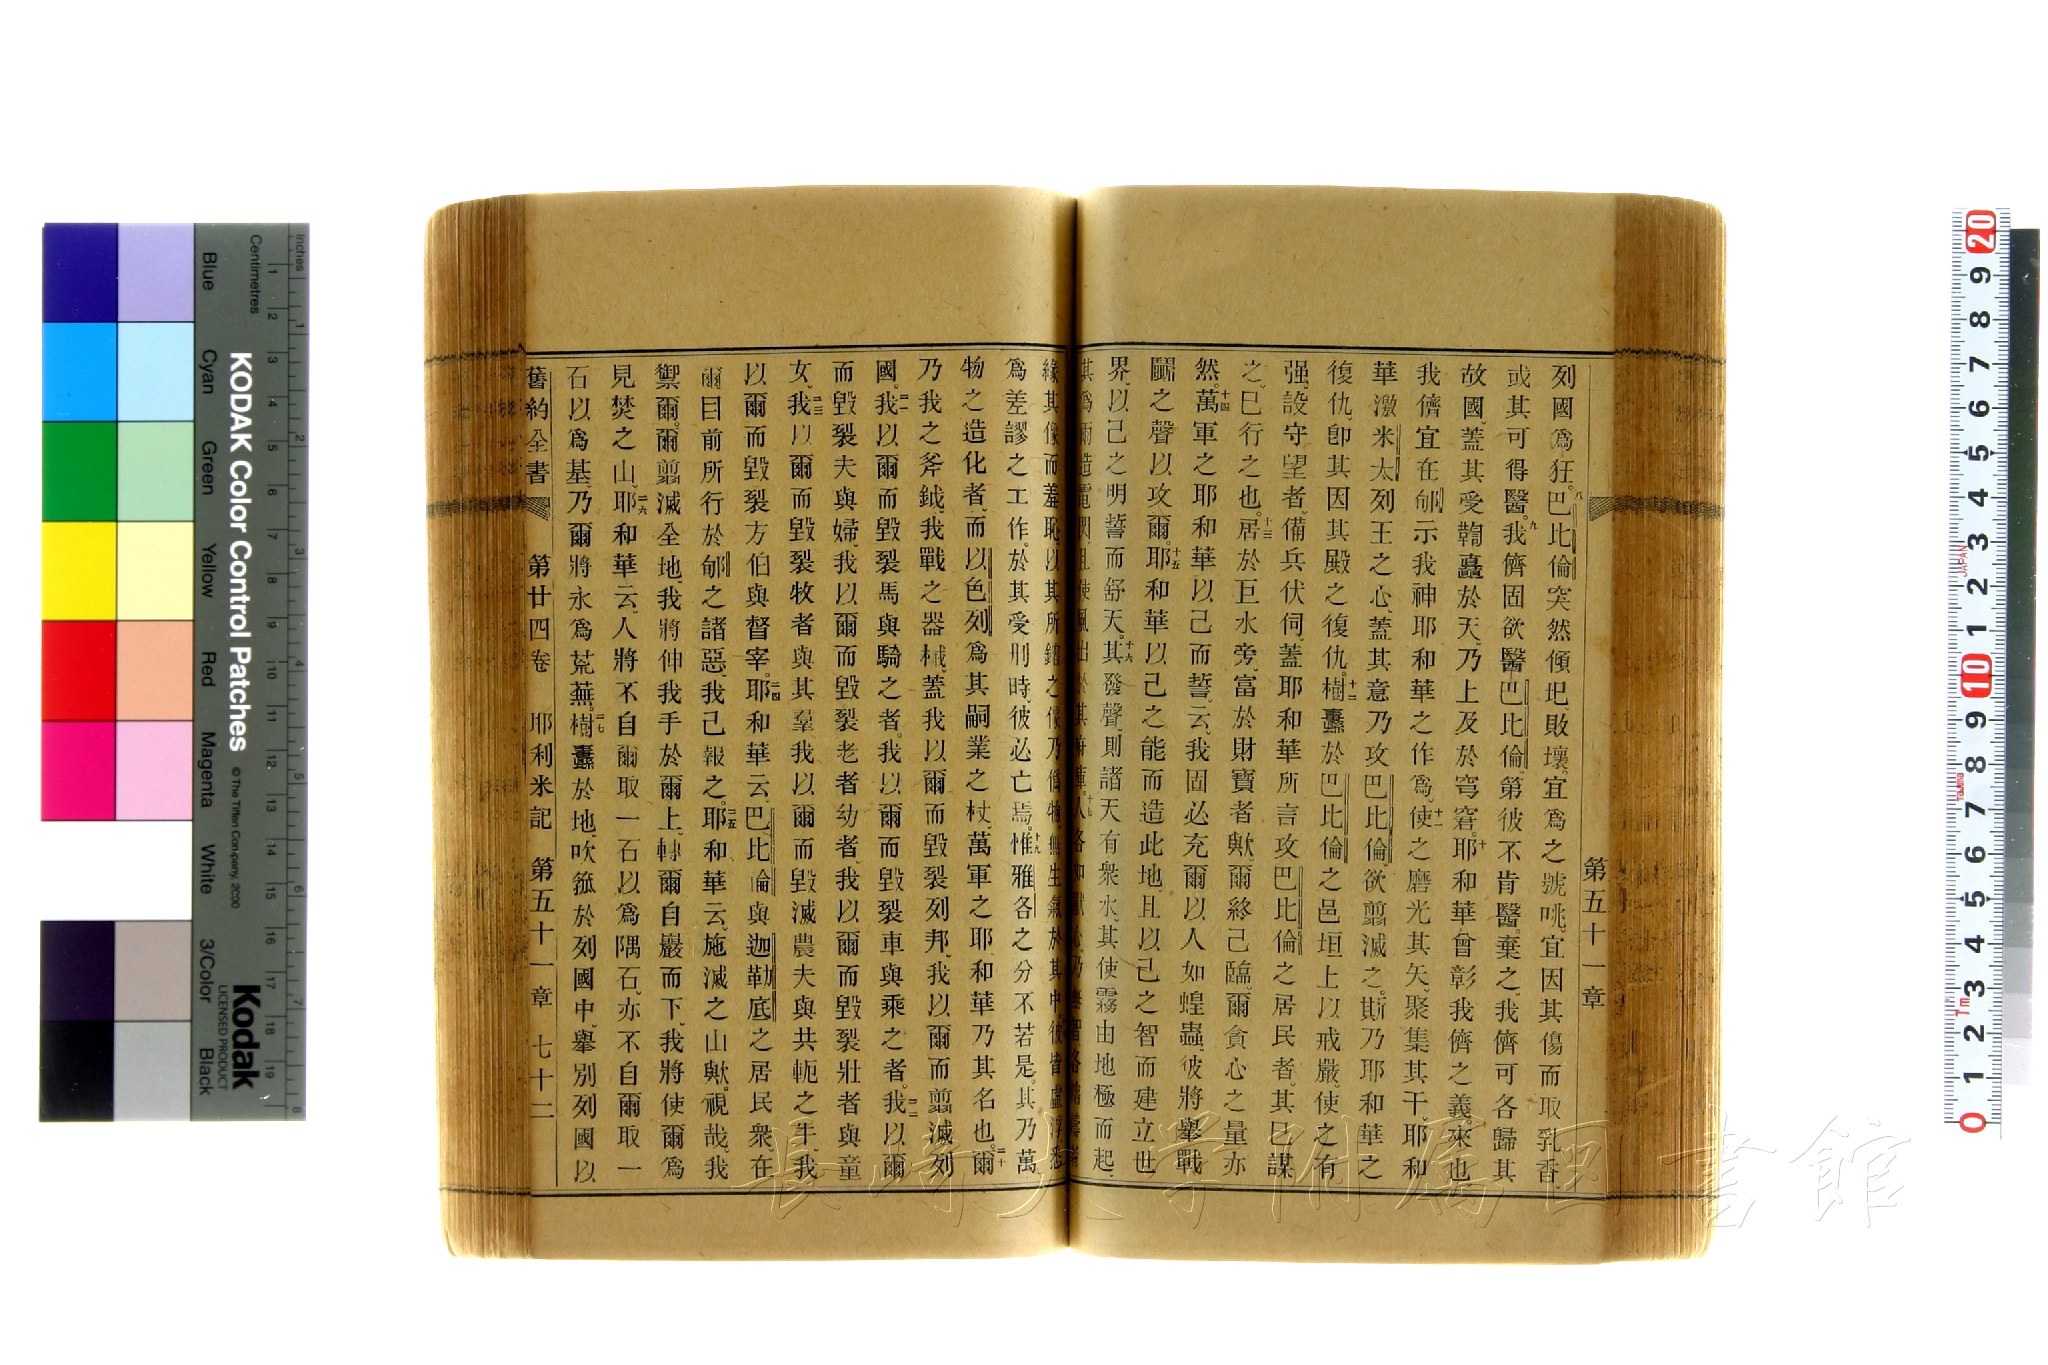 第五十一章
列國爲狂。八巴比倫突然傾圯、敗壞、宜爲之號咷、宜因其傷而取乳香、
或其可得醫。九我儕固欲醫巴比倫、第彼不肯醫、棄之、我儕可各歸其
故國、蓋其受鞫矗於天、乃上及於穹窘。十耶和華曾彰我儕之義、來也、
我儕宜在郇示我神耶和華之作爲。十一使之磨光其矢、聚集其干、耶和
華激米太列王之心、蓋其意乃攻巴比倫、欲翦滅之、斯乃耶和華之
復仇、卽其因其殿之復仇。十二樹纛於巴比倫之邑垣上以戒嚴、使之有
强、設守望者、備兵伏伺、蓋耶和華所言攻巴比倫之居民者、其已謀
之、已行之也。十三居於巨水旁、富於財寶者歟、爾終己臨、爾貪心之量亦
然。十四萬軍之耶和華以己而誓、云、我固必充爾以人如蝗蟲、彼將舉戰
鬭之聲以攻爾。十五耶和華以己之能而造此地、且以己之智而建立世
界、以己之明誓而舒天。十六其發聲、則諸天有衆水、其使霧由地極而起、
其爲雨造電閃、且使風出於其府庫。十七人各如獸心、乃無智
緣其像而羞恥、以其所鎔之像乃僞物、無生氣於其中。彼皆虛浮、悉
爲差謬之工作、於其受刑時、彼必亡焉。十九惟雅各之分不若是、其乃萬
物之造化者、而以色列爲其嗣業之杖、萬軍之耶和華乃其名也。二十爾
乃我之斧鉞、我戰之器械、蓋我以爾而毀裂列邦、我以爾而翦滅列
國。二一我以爾而毀裂馬與騎之者、我以爾而毀裂車與乘之者。二二我以爾
而毀裂夫與婦、我以爾而毀裂老者幼者、我以爾而毀裂壯者與童
女。二三我以爾而毀裂牧者與其羣、我以爾而毀滅農夫與共軛之牛、我
以爾而毀裂方伯與督宰。二四耶和華云、巴比倫與迦勒底之居民衆、在
爾目前所行於郇之諸惡、我己報之。二五耶和華云、施滅之山歟、視哉、我
禦爾、爾翦滅全地、我將伸我手於爾上、轉爾自巖而下、我將使爾爲
見焚之山。二六耶和華云、人將不自爾取一石以爲隅石、亦不自爾取一
石以爲基、乃爾將永爲荒蕪。二七樹纛於地、吹箛於列國中、舉別列國以
舊約全書 第廿四卷 耶利米記 第五十一章 七十二
KODAK Color Control Patches
© The Tiffen Company, 2000
Kodak
LICENSED PRODUCT
Inches
Centimetres
Blue Cyan Green Yellow Red Magenta White 3/Color Black
1 2 3 4 5 6 7 8 9 10 11 12 13 14 15 16 17 18 19
1 2 3 4 5 6 7 8
20 9 8 7 6 5 4 3 2 1 10 9 8 7 6 5 4 3 2 1 0
JAPAN
Tajima
1m
長崎大学附属図書館